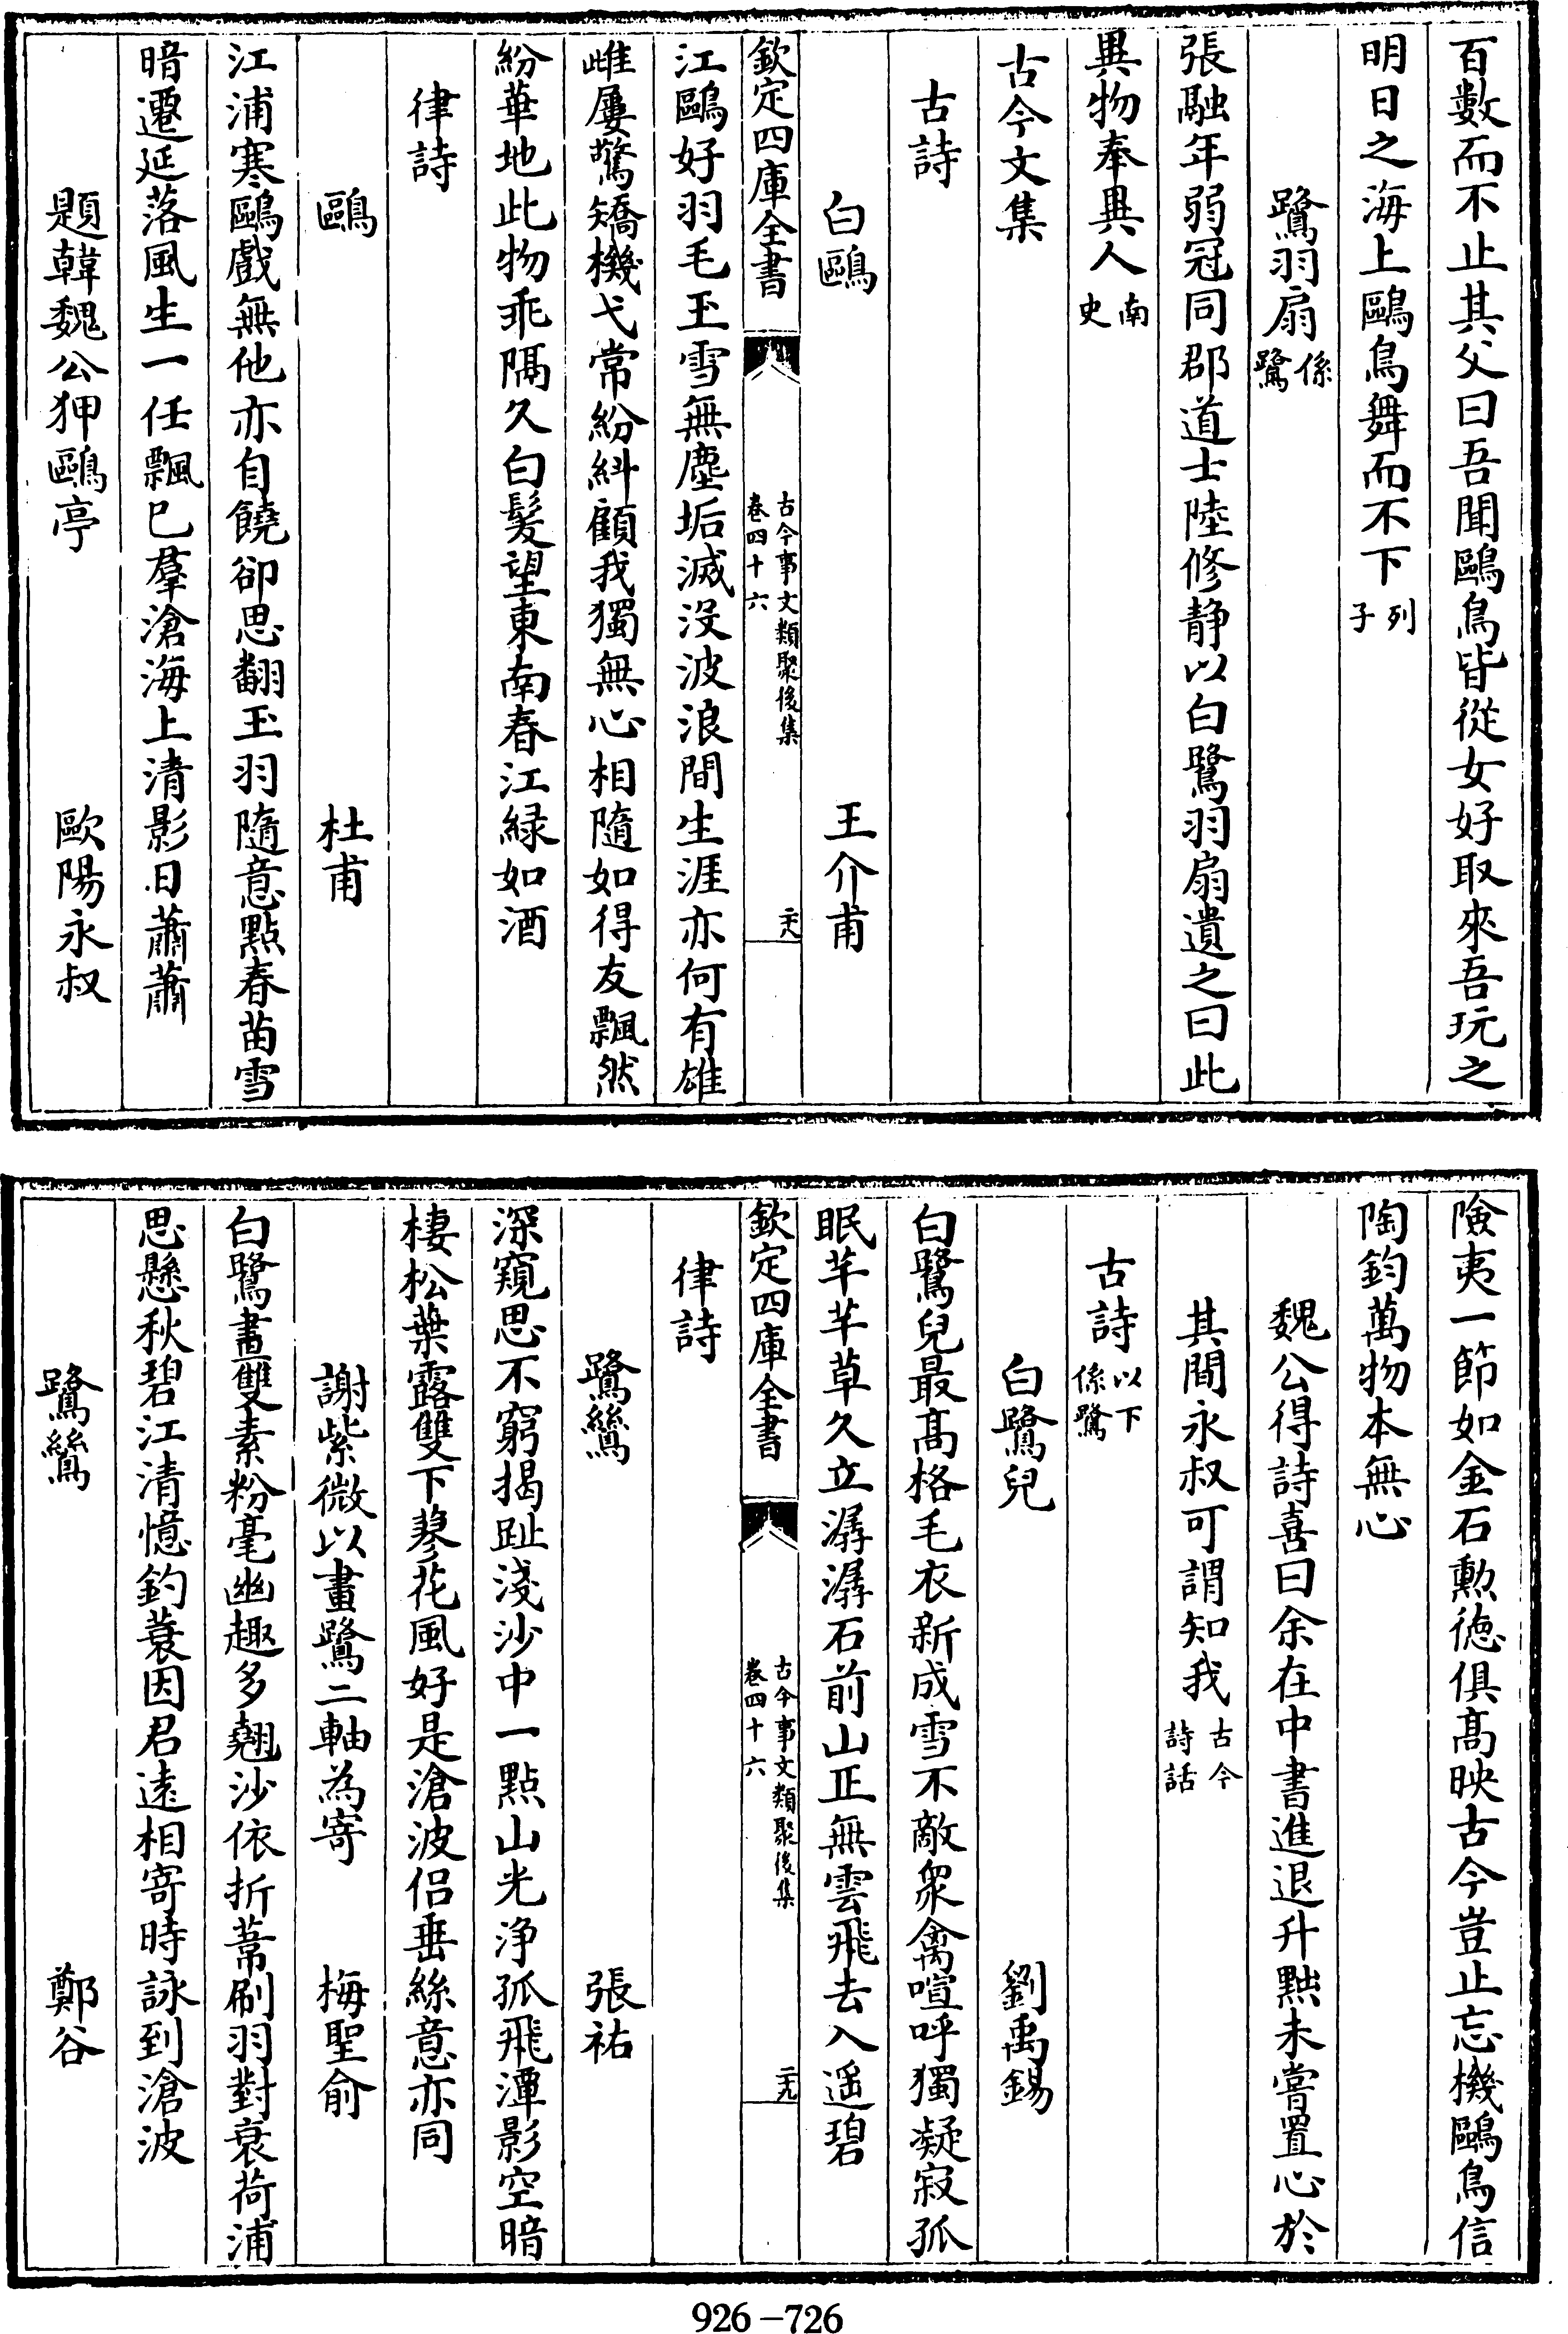 百數而不止其父曰吾聞鷗鳥皆從女好取來吾玩之
明日之海上鷗鳥舞而不下列子
鷺羽扇係鷺
張融年弱冠同郡道士陸修静以白鷺羽扇遺之曰此
異物奉異人南史
古今文集
古詩
白鷗　王介甫
欽定四庫全書　古今事文類聚後集卷四十六　二十八
江鷗好羽毛玉雪無塵垢滅没波浪間生涯亦何有雄
雌屢驚矯機弋常紛糾顧我獨無心相隨如得友飄然
紛華地此物乖隔久白髪望東南春江緑如酒
律詩
鷗　杜甫
江浦寒鷗戲無他亦自饒卻思翻玉羽隨意點春苗雪
暗遷延落風生一任飄已羣滄海上清影日蕭蕭
題韓魏公狎鷗亭　歐陽永叔
險夷一節如金石勲徳俱髙映古今豈止忘機鷗鳥信
陶鈞萬物本無心
魏公得詩喜曰余在中書進退升黜未嘗置心於
其間永叔可謂知我古今詩話
古詩以下係鷺
白鷺兒　劉禹錫
白鷺兒最髙格毛衣新成雪不敵衆禽喧呼獨凝寂孤
眠芊芊草久立潺潺石前山正無雲飛去入遥碧
欽定四庫全書　古今事文類聚後集卷四十六　二十九
律詩
鷺鷥　張祐
深窺思不窮揭趾淺沙中一點山光浄孤飛潭影空暗
棲松葉露雙下蓼花風好是滄波侣垂絲意亦同
謝紫微以畫鷺二軸為寄　梅聖俞
白鷺畫雙素粉毫幽趣多翹沙依折葦刷羽對衰荷浦
思懸秋碧江清憶釣蓑因君逺相寄時詠到滄波
鷺鷥　鄭谷
926-726